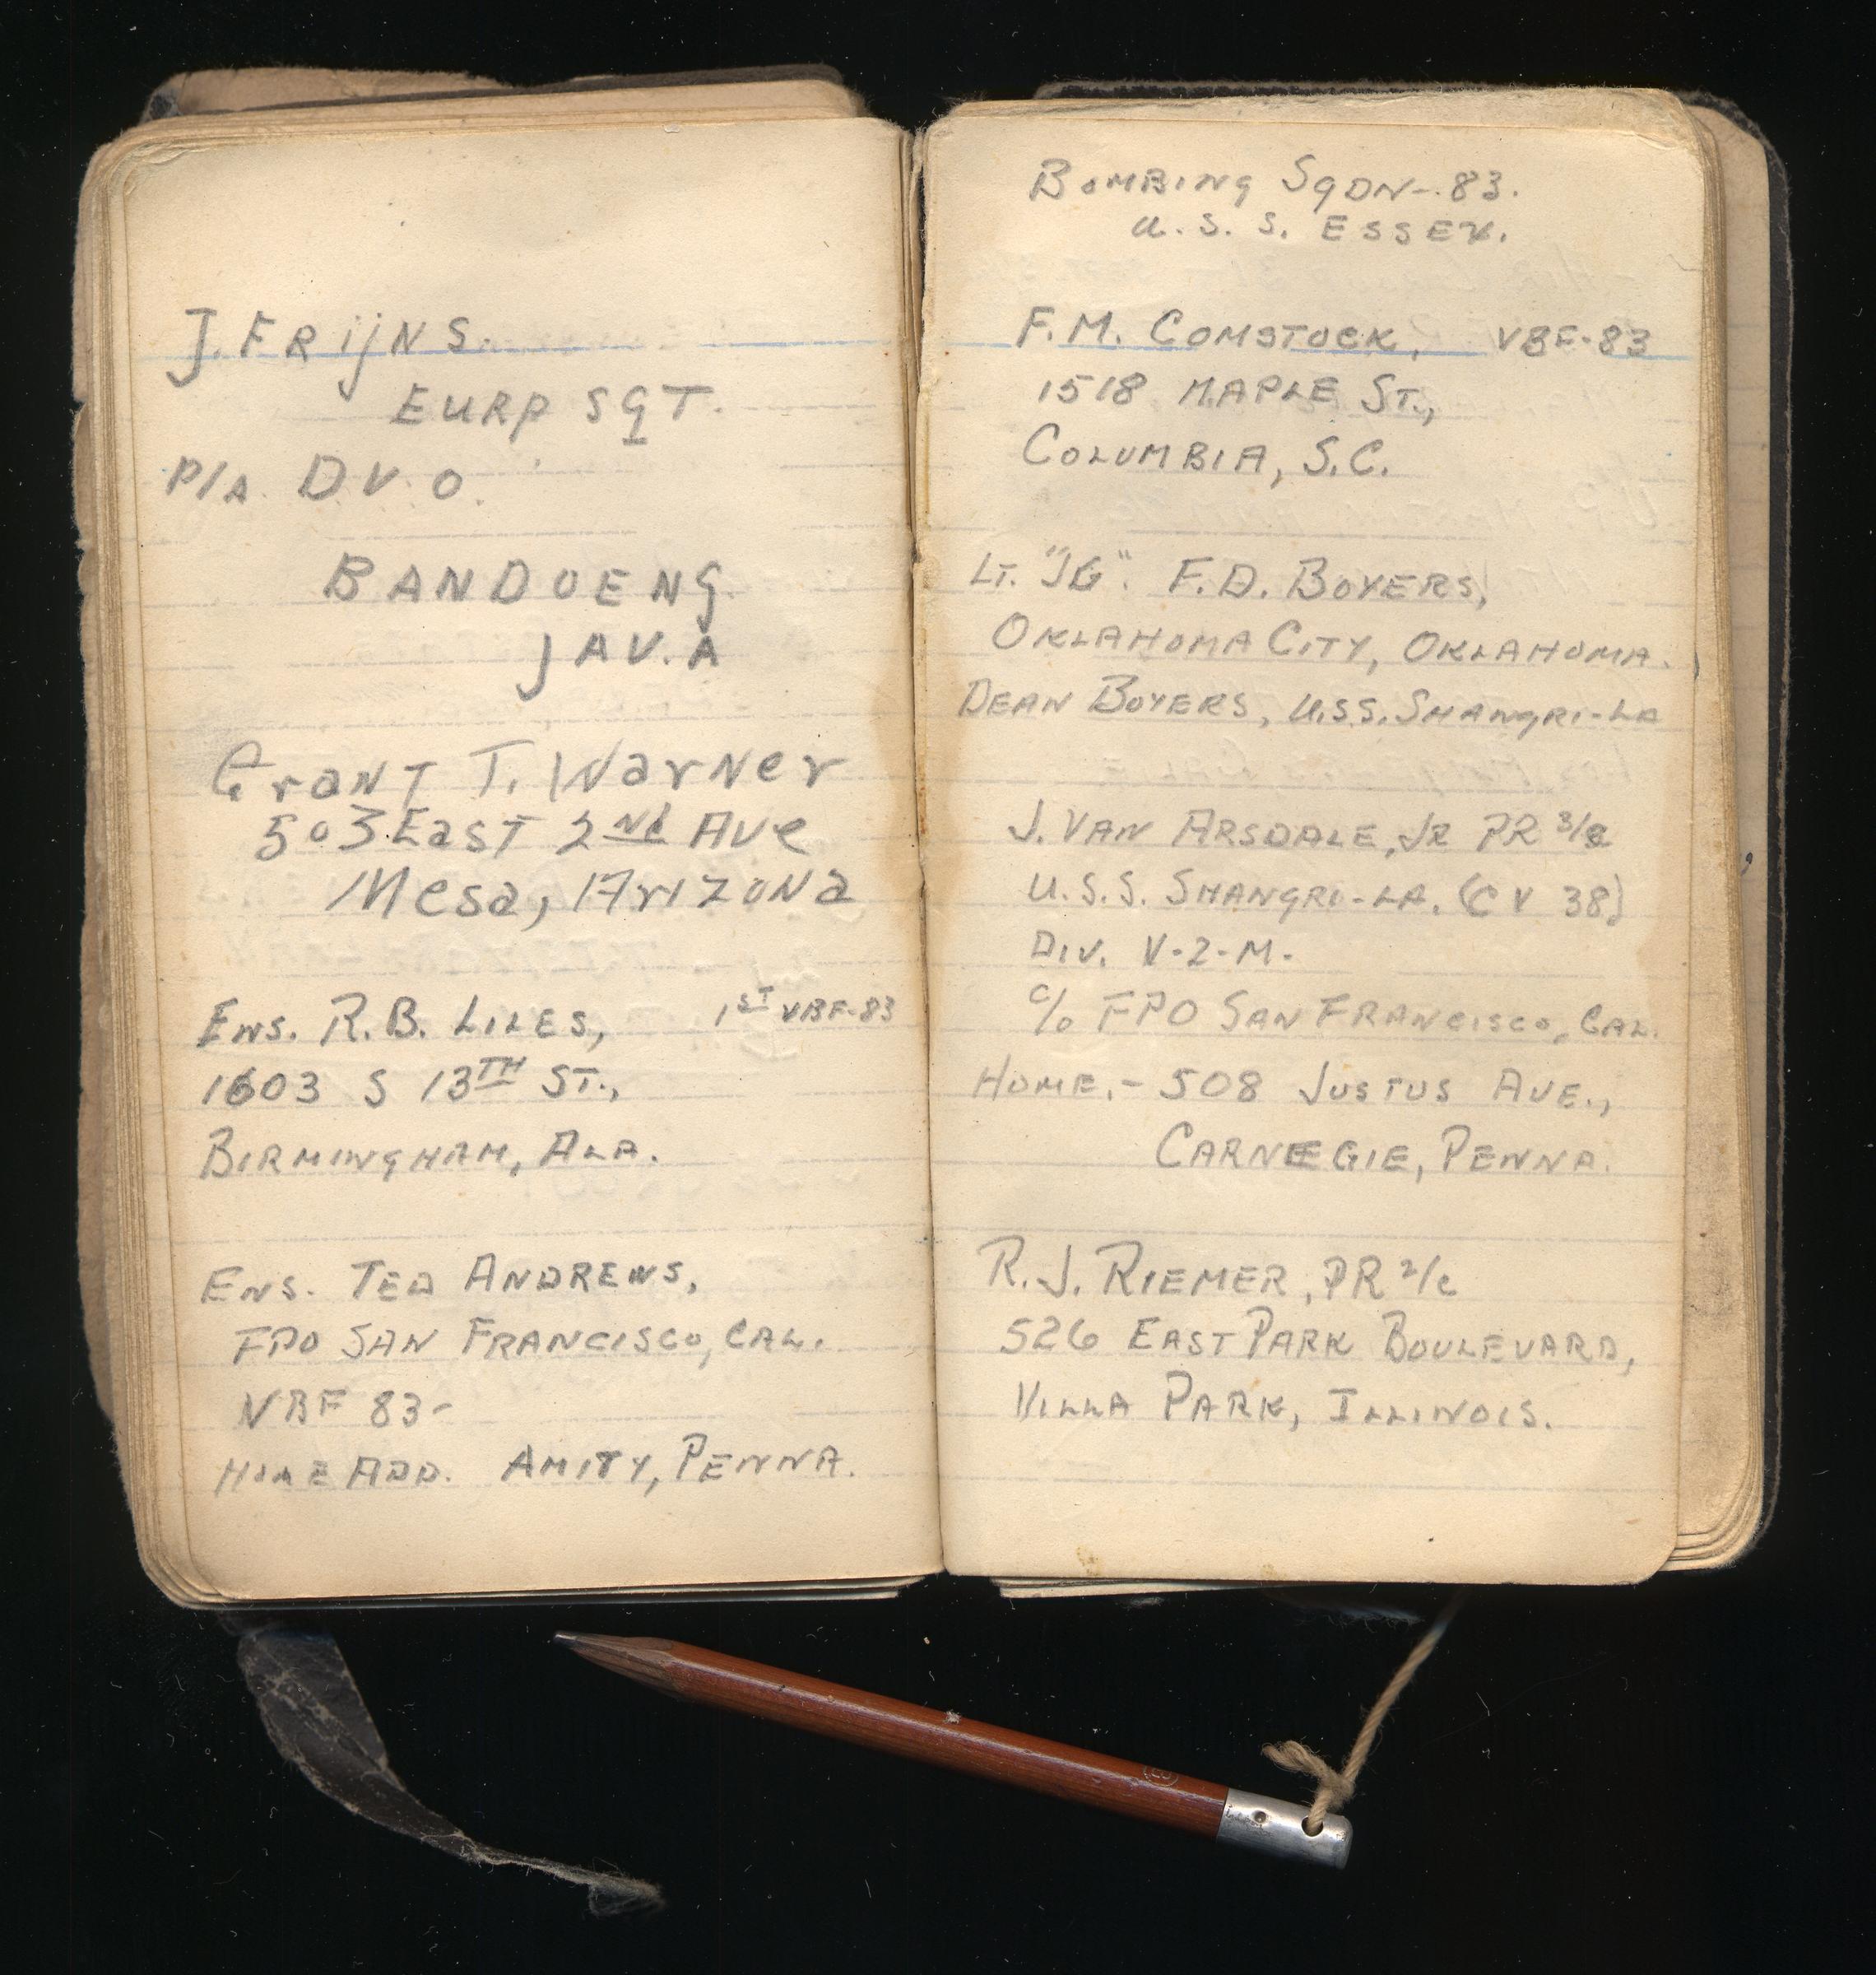 J. FRijNS.
EURP SGT.
P/A. D V O.
BANDOENG
JAVA
Grant T. Warner
503 East 2nd Ave
Mesa, Arizona
ENS. R. B. LILES, 1ST VBF-83
1603 S 13TH ST.,
BIRMINGHAM, ALA.
ENS. TED ANDREWS,
FPO SAN FRANCISCO, CAL.
VBF 83-
HOME ADD. AMITY, PENNA.
BOMBING SQDN-83.
U.S.S. ESSEX.
F. M. COMSTOCK, VBF-83
1518 MAPLE ST.,
COLUMBIA, S.C.
LT. "JG". F. D. BOYERS,
OKLAHOMA CITY, OKLAHOMA.
DEAN BOYERS, U.S.S. SHANGRI-LA
J. VAN ARSDALE, JR PR 3/c
U.S.S. SHANGRI-LA. (CV 38)
DIV. V-2-M.
c/o FPO SAN FRANCISCO, CAL.
HOME.- 508 JUSTUS AVE.,
CARNEGIE, PENNA.
R. J. RIEMER, PR 2/c
526 EAST PARK BOULEVARD,
VILLA PARK, ILLINOIS.